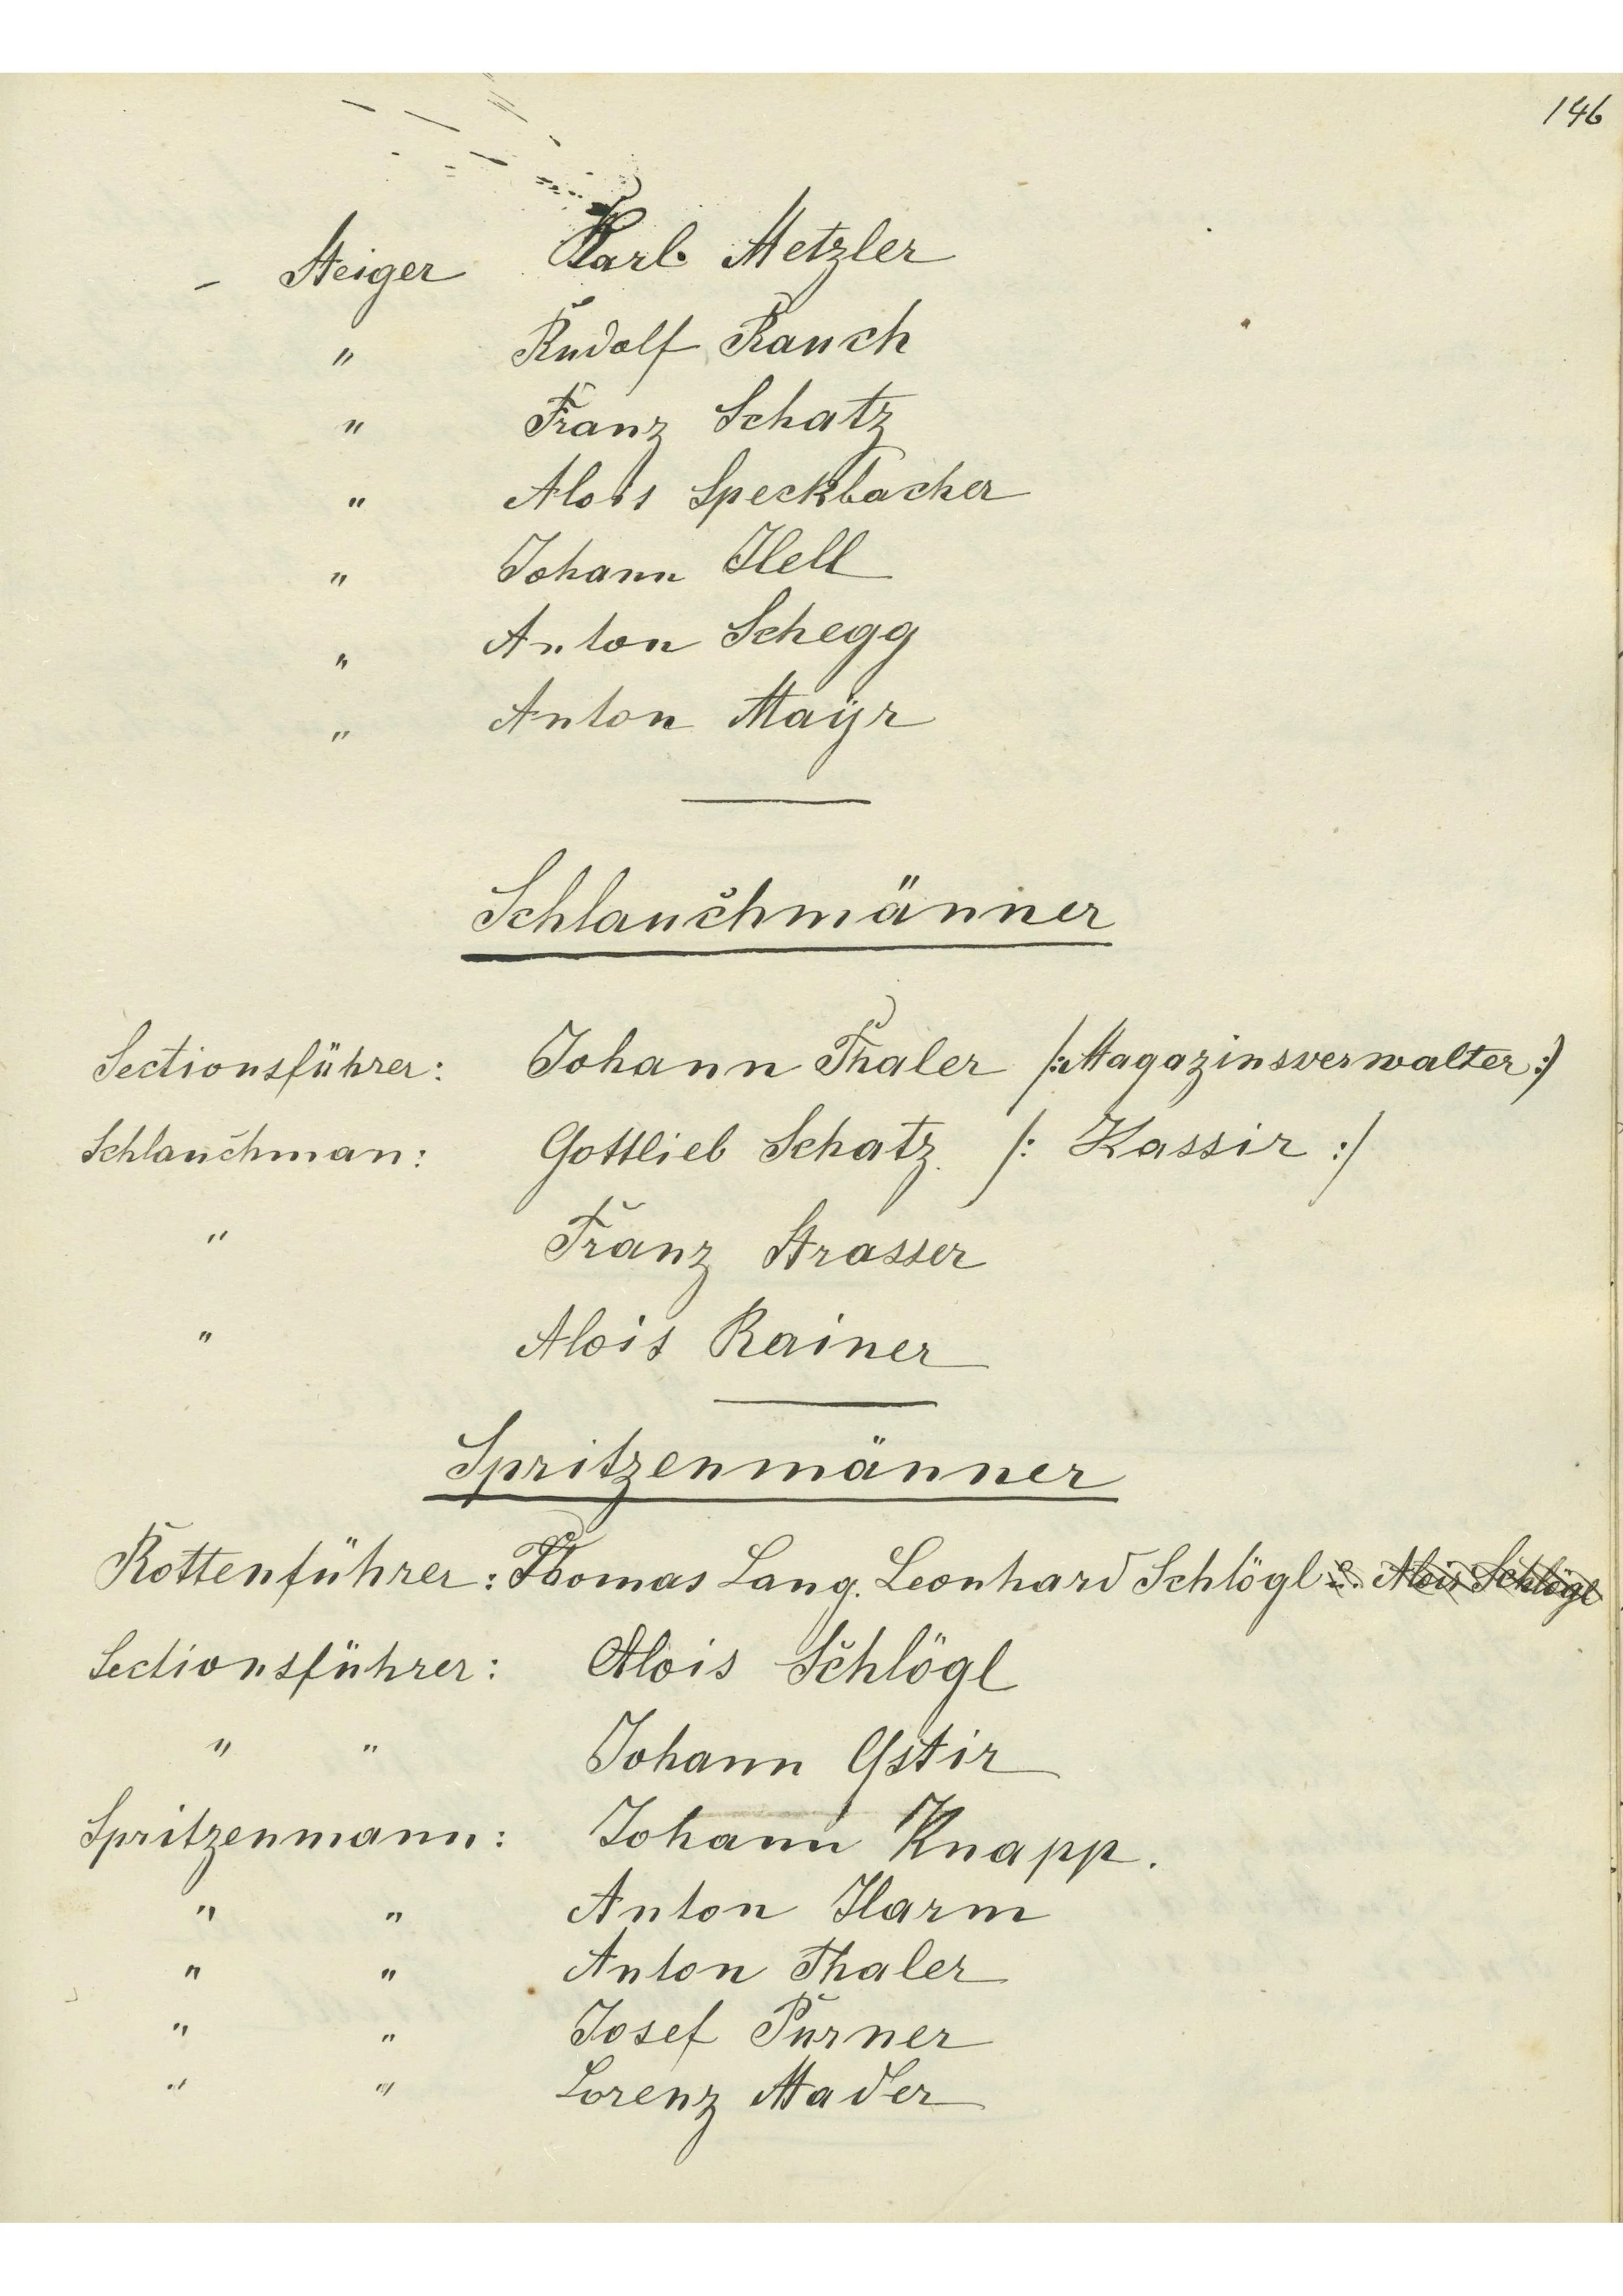 146
- Steiger Karl Metzler
" Rudolf Rauch
" Franz Schatz
" Alois Speckbacher
" Johann Hell
" Anton Schegg
" Anton Maÿr
Schlauchmänner
Sectionsführer: Johann Thaler /: Magazinsverwalter :/
Schlauchman: Gottlieb Schatz /: Kassir :/
" Franz Strasser
" Alois Rainer
Spritzenmänner
Rottenführer: Thomas Lang. Leonhard Schlögl u. Alois Schlögl
Sectionsführer: Alois Schlögl
" " Johann Gstir
Spritzenmann: Johann Knapp.
" " Anton Harm
" " Anton Thaler
" " Josef Purner
" " Lorenz Mader